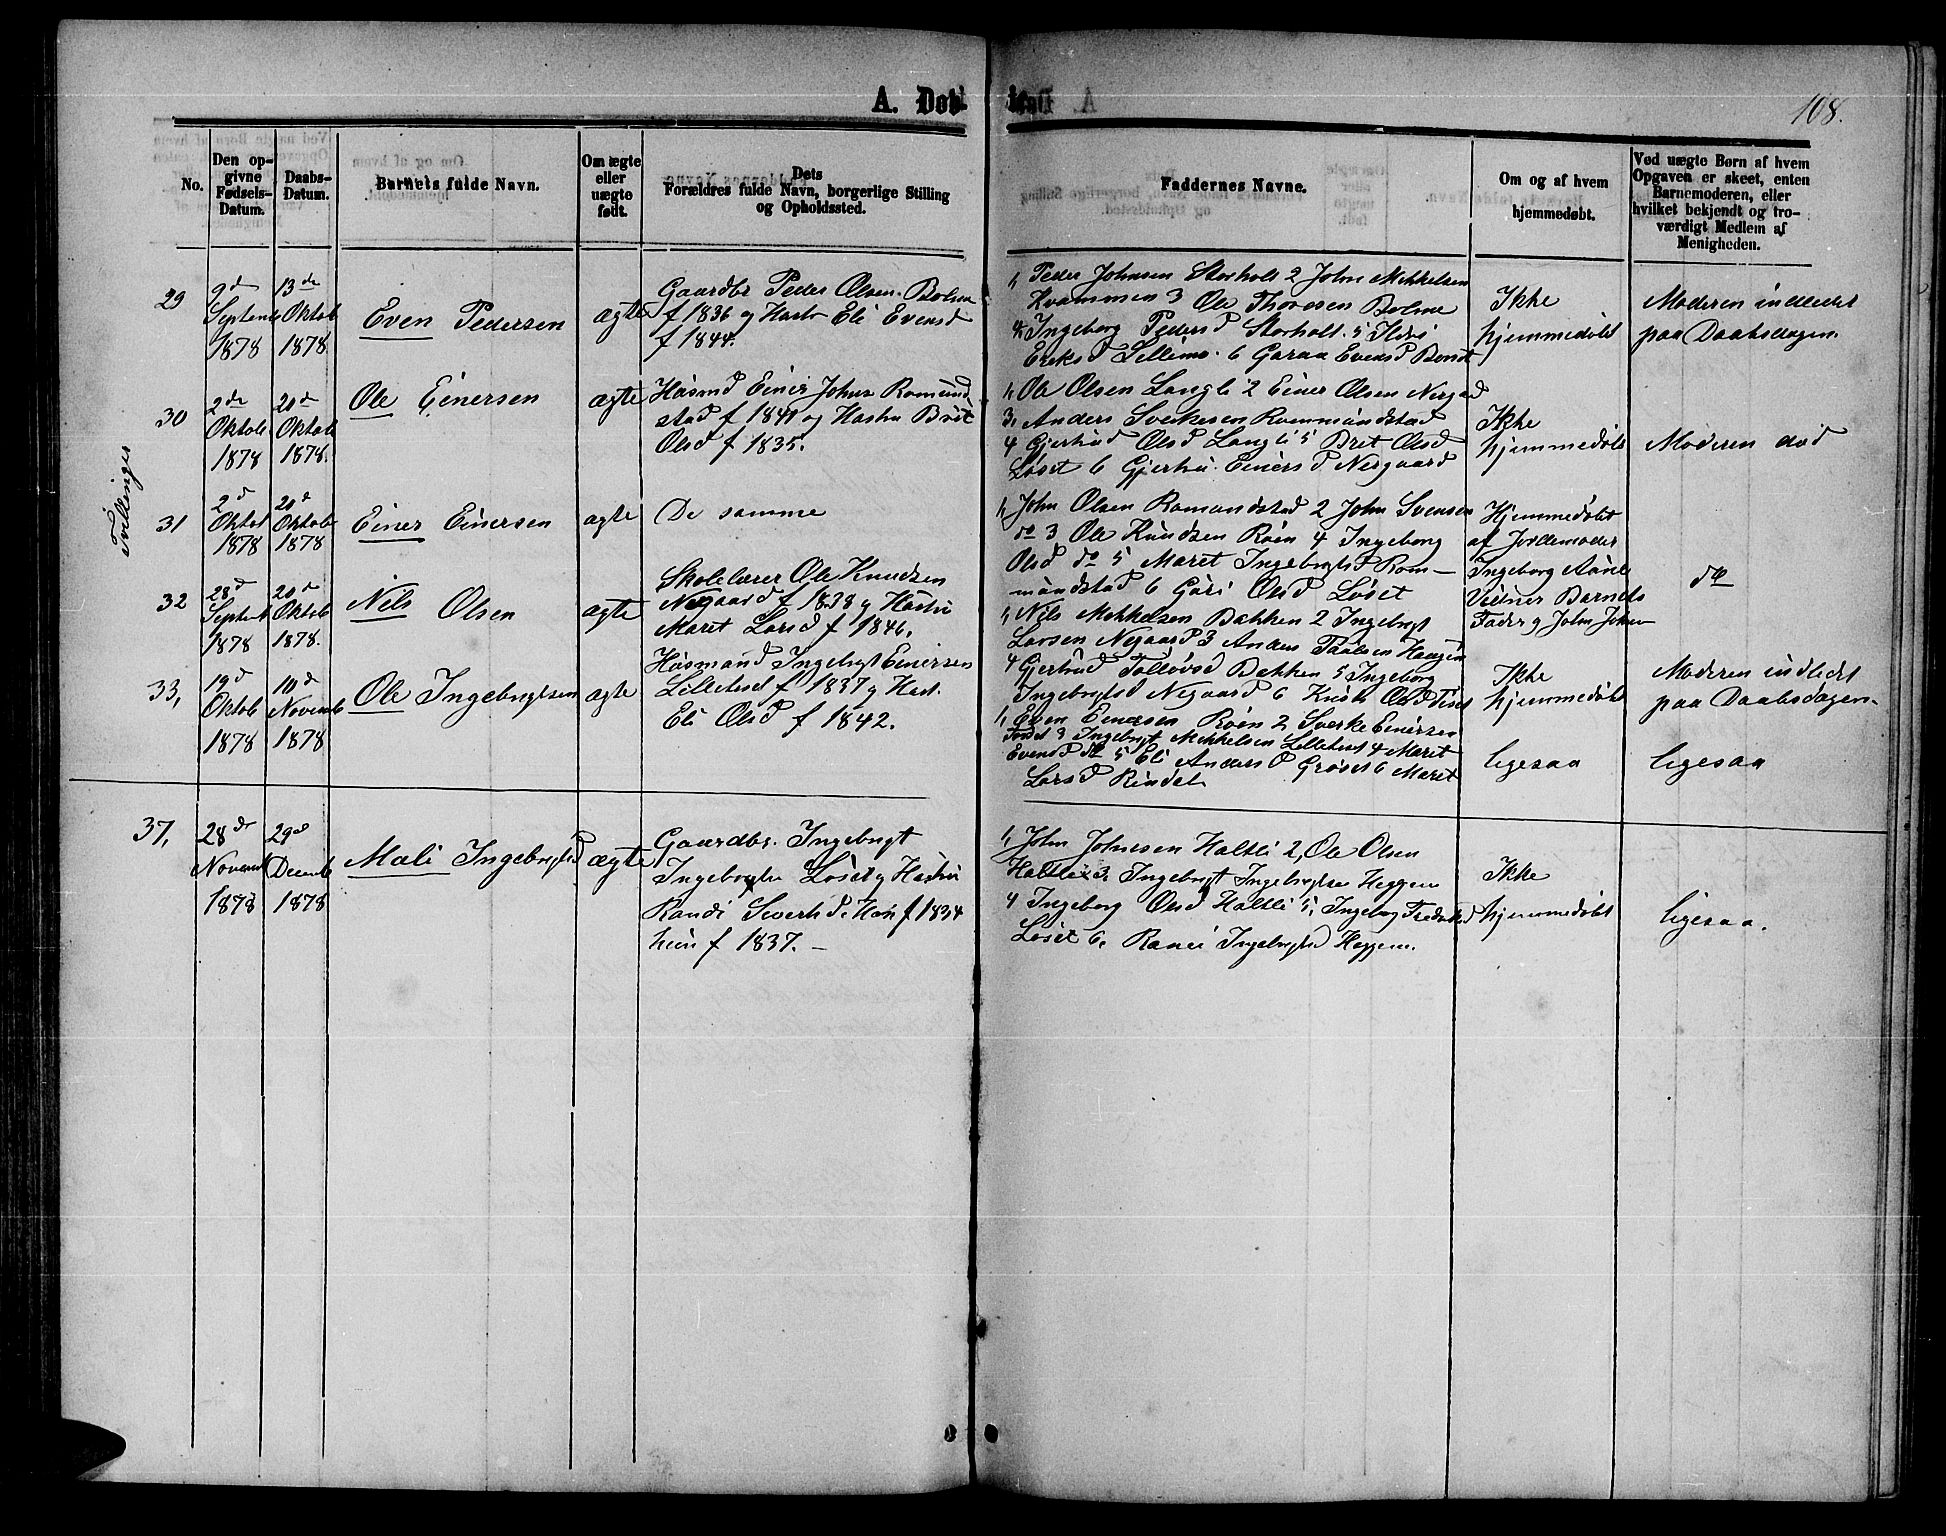 A. Døb
108.
No.
Den op-
givne
Fødsels-
Datum.
Daabs-
Datum.
Barnets fulde Navn.
Om ægte
eller
uægte
født.
Dets
Forældres fulde Navn, borgerlige Stilling
og Opholdssted.
Faddernes Navne.
Om og af hvem
hjemmedøbt.
Ved uægte Børn af hvem
Opgaven er skeet, enten
Barnemoderen, eller
hvilket bekjendt og tro-
værdigt Medlem af
Menigheden.
29
9d
Septemb
1878
13de
Oktob
1878.
Even Pedersen
ægte
Gaardbr Peder Olsen Bolme
f 1836 og Hustr Eli Evensd
f 1844.
1, Peder Johnsen Storholt 2 John Mikkelsen
Kvammen 3 Ole Thoresen Bolme
4. Ingeborg Pedersd Storholt. 5 Ildri
Eriksd Lillemo. 6 Guraa Evensd
Ikke
hjemmedøbt
Moderen indledet
paa Daabsdagen.
Tvillinger
30
2de
Oktob
1878
20d
Oktob
1878.
Ole Einersen
ægte
Husmd Einer Johns Romund
stad f 1841 og Hustru Brit
Olsd f 1835.
1, Ole Olsen Langli 2 Einer Olsen Nergad
3, Anders Sverkesen Rommundstad
4 Gjertrud Olsd Langli 5 Bret Olsd
Løset 6 Gjertru. Einersd Nergaard
Ikke
hjemmedøbt
Moderen død
31
2d
Oktob
1878
20d
Oktob
1878
Einer Einersen
ægte
De samme
1, John Olsen Romundstad 2 John Svensen
do 3 Ole Knudsen Røen 4 Ingeborg
Olsd do 5 Maret Ingebrigtsd Rom-
mundstad 6 Guri Olsd Løset
Hjemmedøbt
af Jordemoder
Ingeborg Aune
Vidner Barnets
Fader g John Johns
do
32
28d
Septeb
1878
20d
Oktob
1878.
Nils Olsen
ægte
Skolelærer Ole Knudsen
Negaard f 1838 g Hustru
Maret Larsd f 1846.
1, Nils Mikkelsen Bakken 2 Ingebrigt
Larsen Negaard 3 Anders Paalsen Haugen
4 Gjertrud Tollövsd Bakken 5 Ingeborg
Ingebrigtsd Negaard 6 Olsd
Ikke
hjemmedøbt
Moderen indledet
paa Daabsdagen.
33,
19d
Oktob
1878
10d
Novemb
1878
Ole Ingebrigtsen
ægte
Husmand Ingebrigt Einersen
Lilletiset f 1837 g Hust.
Eli Olsd f 1842.
1, Even Einersen Røen 2 Sverke Einersen
3 Ingebrigt Mikkelsen 4 Maret
Evensd do 5 Eli Andersd Grøset 6 Maret
Larsd Rindal
ligesaa
ligesaa
37,
28de
Novemb
1878
29d
Decemb
1878
Mali Ingebrigtsd
ægte
Gaardbr. Ingebrigt
Ingebrigtsn Løset g Hustru
Randi Sivertsd. Han f 1834
hun f 1837. -
1, John Johnsen Haltli 2, Ole Olsen
Haltli 3, Ingebrigt Ingebrigtsen Heggem
4 Ingeborg Olsd Haltli 5, Ingeborg
Løset 6, Randi Ingebrigtsd Heggem.
Ikke
hjemmedøbt
ligesaa.